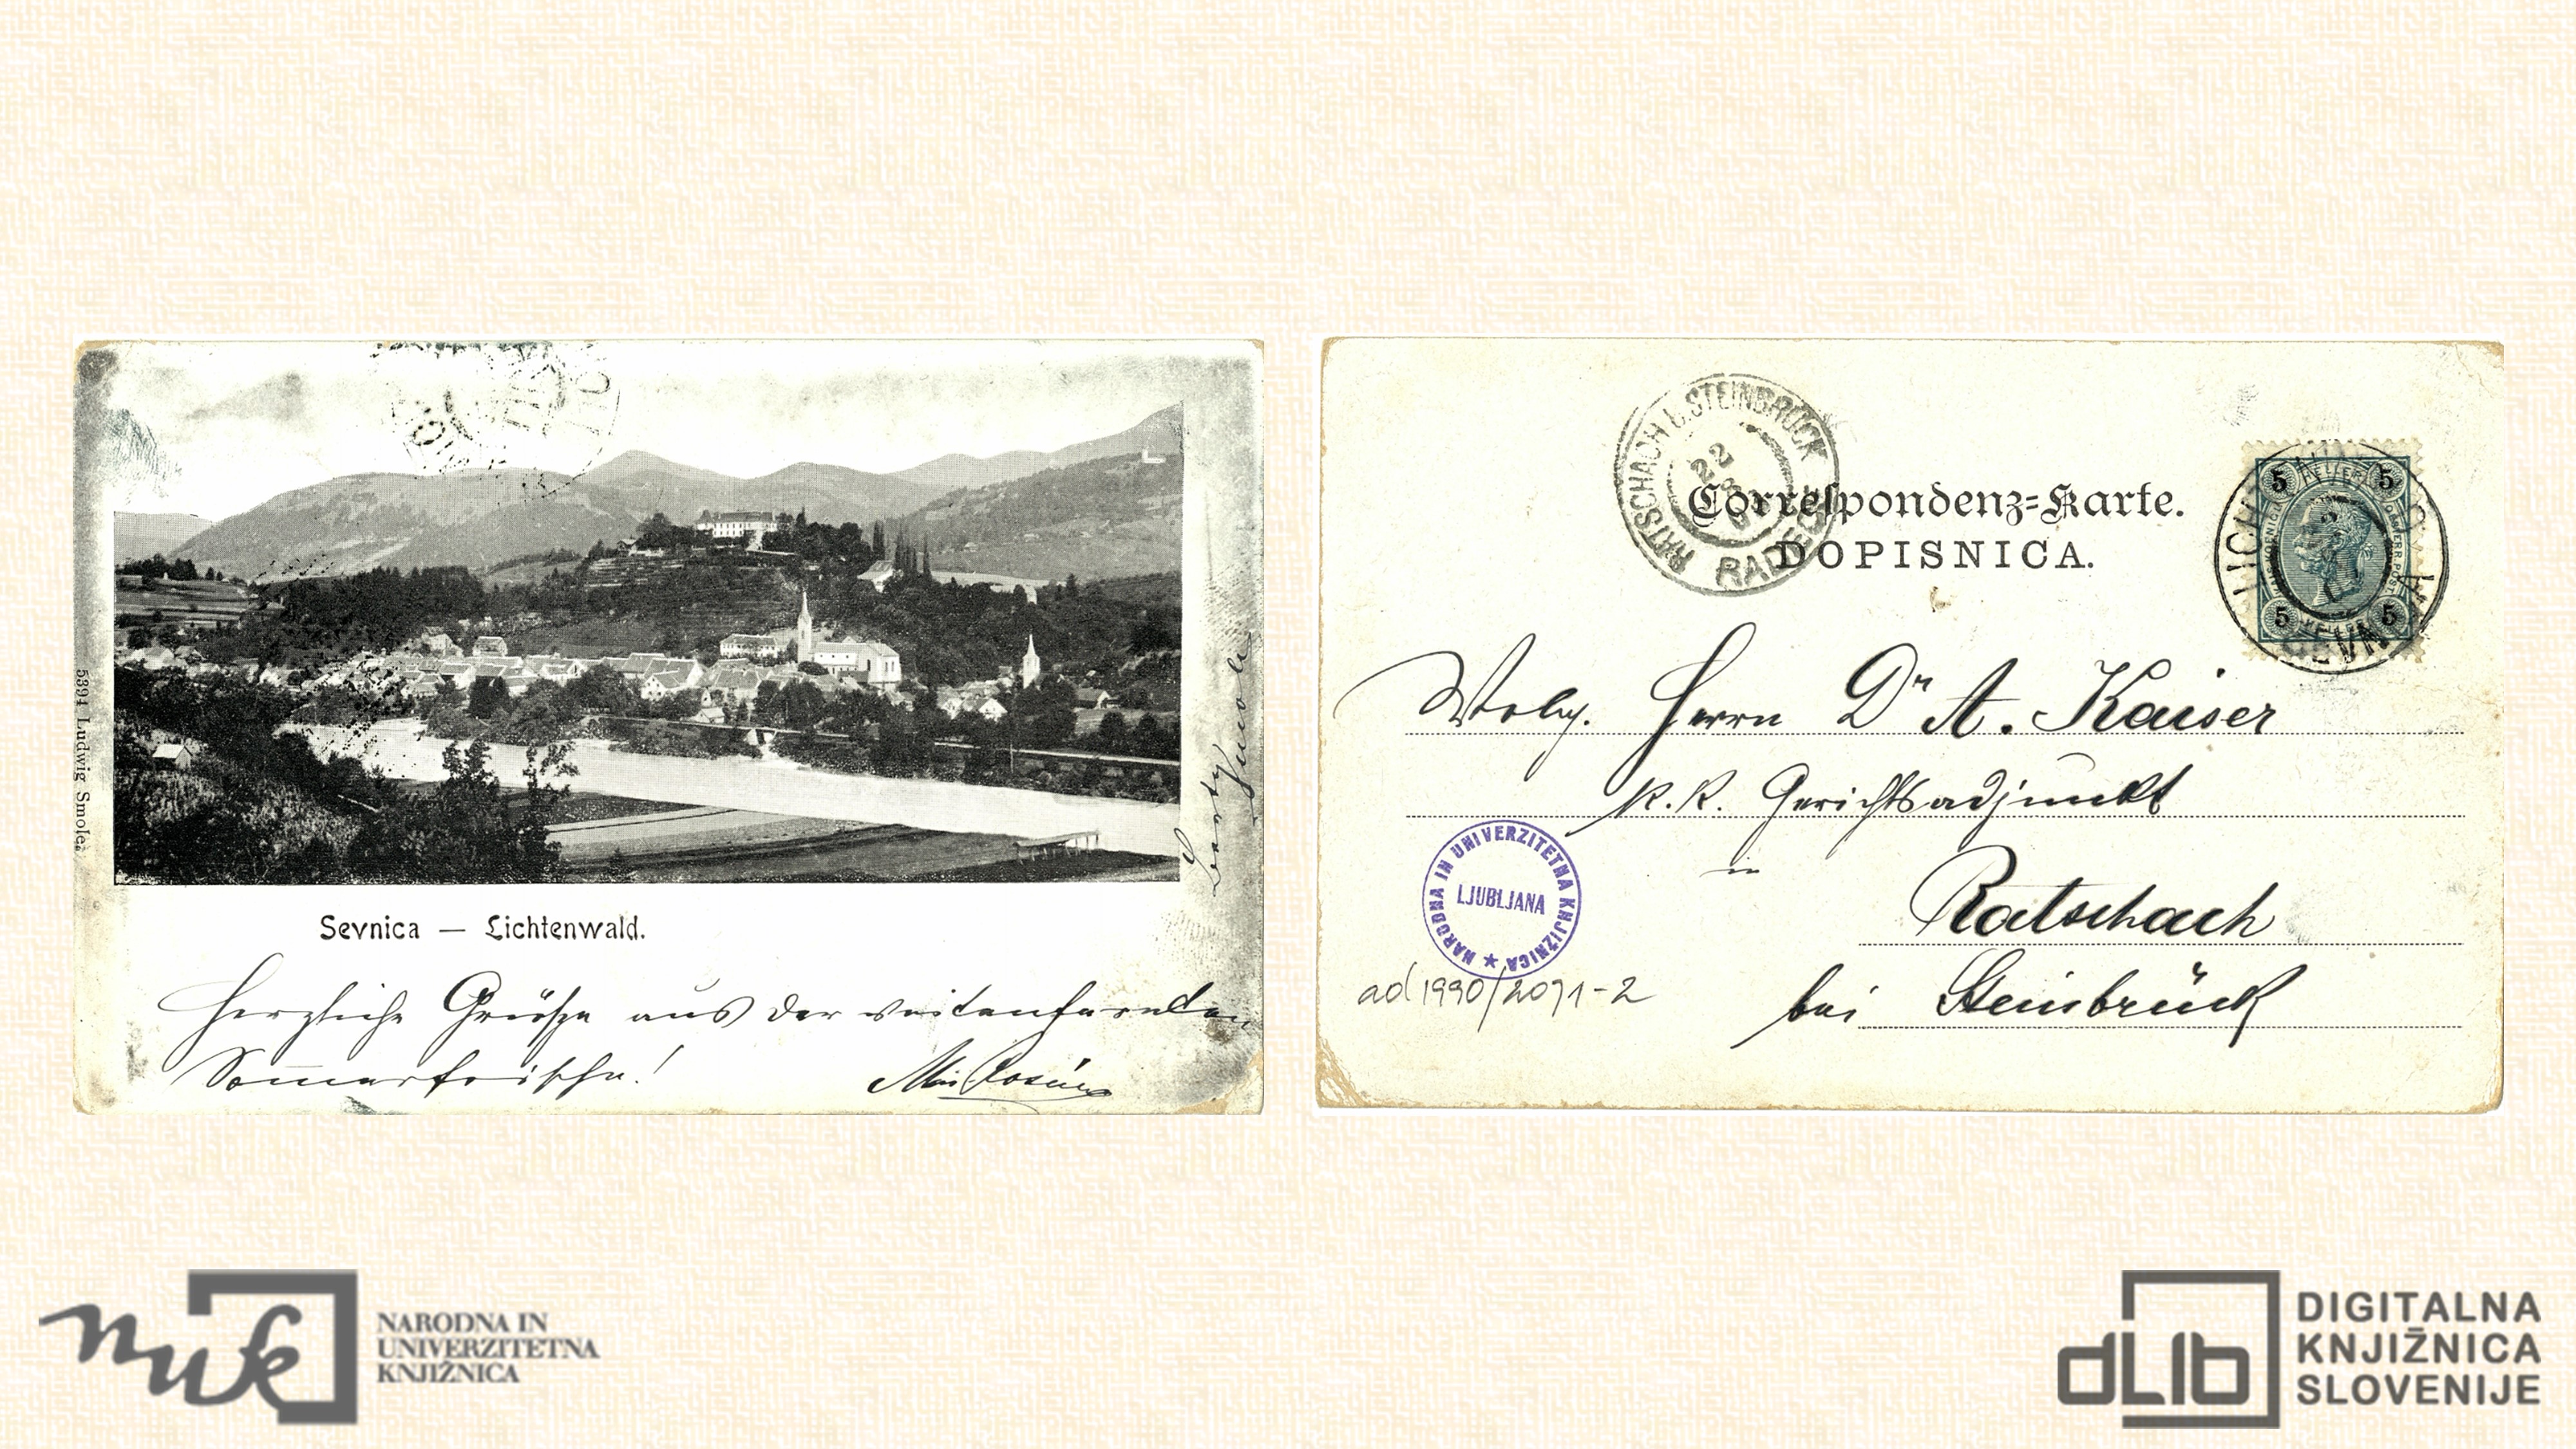 5394 Ludwig Smole
Sevnica — Lichtenwald.
Herzliche Grüsse aus der weitentfernten
Sommerfrische!
Correspondenz=Karte.
DOPISNICA.
RATSCHACH b. STEINBRÜCK
22
RADEČE
5 HELLER 5
5 HELLER 5
Wolg. Herrn Dr A. Kaiser
k. k. Gerichtsadjunkt
in
Ratschach
bei Steinbrück
NARODNA IN UNIVERZITETNA KNJIŽNICA ★
LJUBLJANA
ad 1990/2071-2
nuk
NARODNA IN
UNIVERZITETNA
KNJIŽNICA
dLib
DIGITALNA
KNJIŽNICA
SLOVENIJE